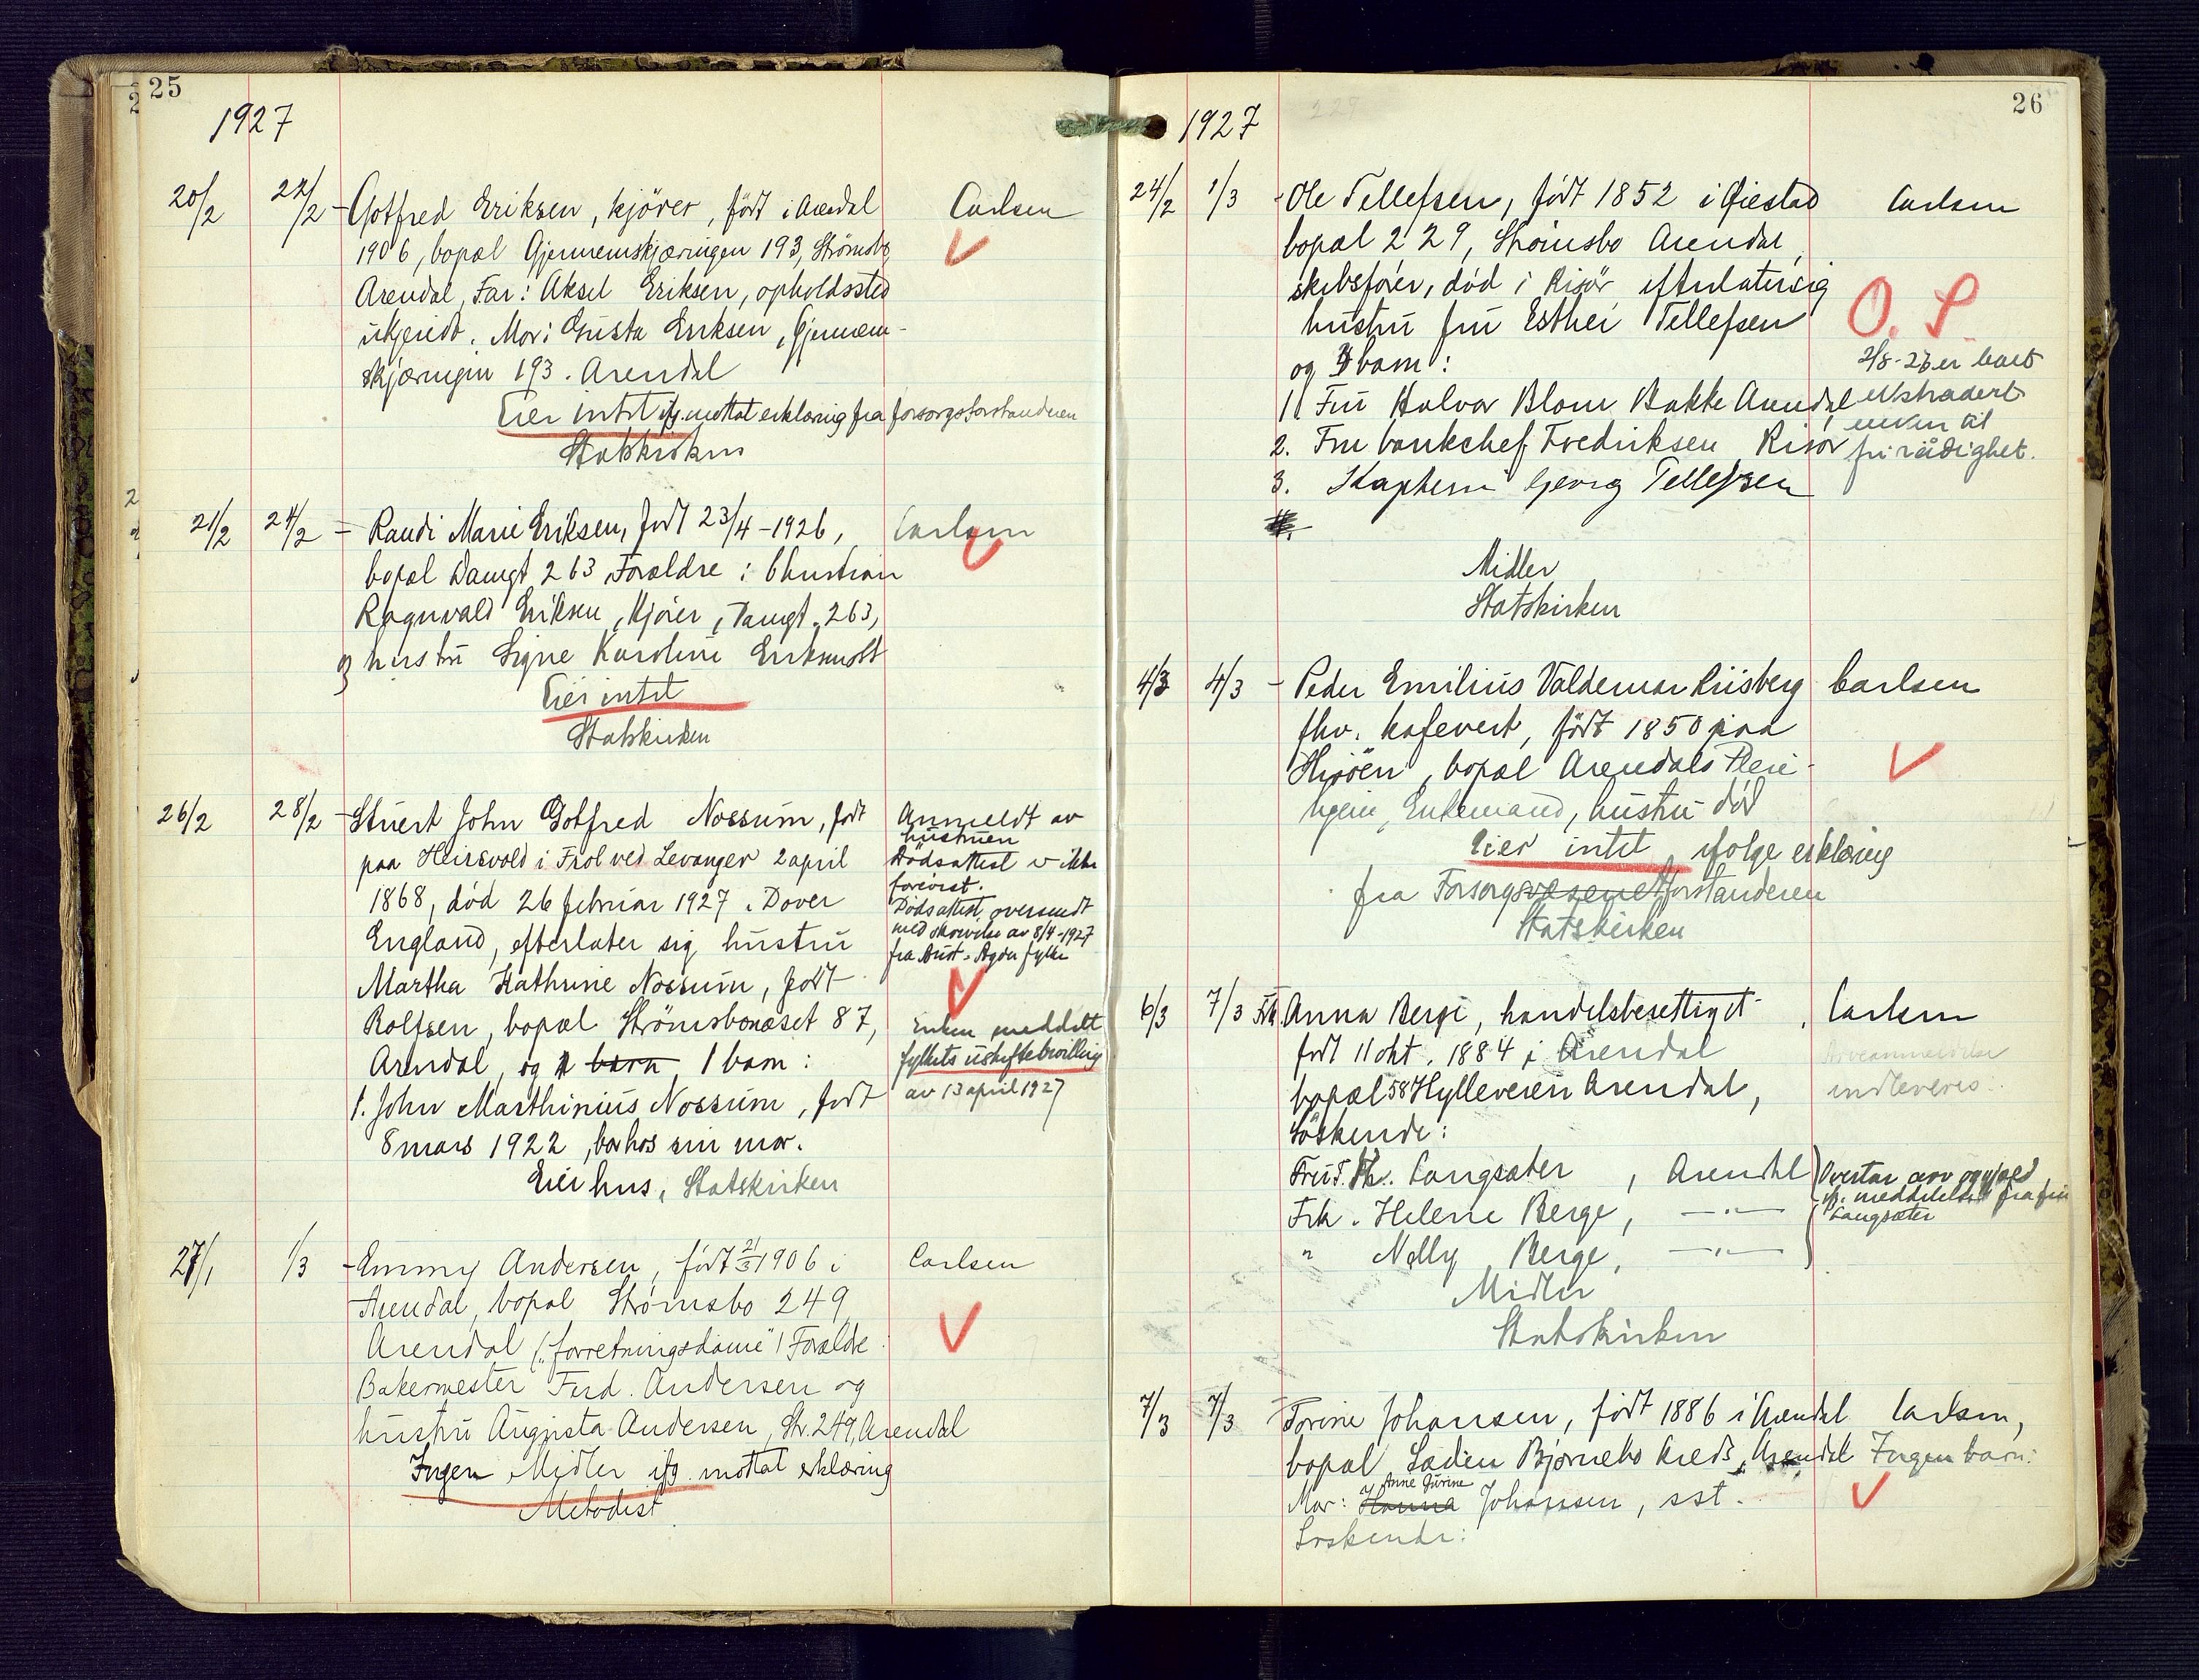 25
1927
20/2 22/2 - Gotfred Eriksen, kjörer, født i Arendal Carlsen
1906, bopæl Gjennemskjæringen 193, Strömsbo
Arendal, Far: Aksel Eriksen, opholdssted
ukjendt. Mor: Gusta Eriksen, Gjennem-
skjæringen 193. Arendal
Eier intet ifg. mottat erklæring fra forsorgsforstanderen
Statskirken
21/2 24/2 - Randi Marie Eriksen, født 23/4-1926, Carlsen
bopæl Damgt 263, Forældre: Christian
Ragnvald Eriksen, kjörer, Damgt. 263,
og hustru Signe Karoline Eriksen sst
Eier intet
Statskirken
26/2 28/2 - Stuert John Gotfred Nossum, født
paa Heirsvold i Frol ved Levanger 2 april
1868, död 26 februar 1927 i Dover
England, efterlater sig hustru
Martha Kathrine Nossum, født
Rolfsen, bopæl Strömsbonæset 87,
Arendal, og barn 1 barn:
1. John Marthinius Nossum, født
8 mars 1922, bor hos sin mor.
Eier hus, Statskirken
Anmeldt av
hustruen
Dödsattest er ikke
forevist.
Dödsattest oversendt
med skrivelse av 8/4-1927
fra Aust-Agder fylke
Enken meddelt
fylkets uskiftebevilling
av 13 april 1927
27/1 1/3 - Emmy Andersen, født 21/3 1906 i Carlsen
Arendal, bopæl Strömsbo 249
Arendal („forretningsdame") Forældre:
Bakermester Ferd. Andersen og
hustru Augusta Andersen, Str. 249, Arendal
Ingen Midler ifg. mottat erklæring
Metodist
26
1927
229
24/2 1/3 - Ole Tellefsen, født 1852 i Øiestad Carlsen
bopæl 229, Strömsbo Arendal,
skibsförer, död i Risör efterlater sig
hustru fru Esther Tellefsen
og 3 barn:
1) Fru Halvor Blom Bakke Arendal
2. Fru bankchef Fredriksen, Risör
3. Kaptein Georg Tellefsen
O. S.
2/8-27 er boet
ekstradert
enken til
fri rådighet.
Midler
Statskirken
4/3 4/3 - Peder Emilius Valdemar Riisberg Carlsen
fhv. kafevert, født 1850 paa
Hisöen, bopæl Arendals Pleie-
hjem, Enkemand, hustru död
Eier intet ifølge erklæring
fra Forsorgsvesenet forstanderen
Statskirken
6/3 7/3 Frk Anna Berge, handelsbesettiget, Carlsen
født 11 okt. 1884 i Arendal
bopæl 58 Hylleveien Arendal,
Söskende:
Fru T. Th. Langsæter, Arendal
Frk. Helene Berge, —"—
" Nelly Berge, —"—
Midler
Statskirken
Arveanmeldelse
indleveres.
Overtar arv og gjæld
if. meddelelse fra fru
Langsæter
7/3 7/3 - Torine Johansen, født 1886 i Arendal Carlsen,
bopæl Laden Bjørnebo kreds, Arendal Ingen barn.
Anne Gurine
Mor: Hanna Johansen, sst.
Söskende: